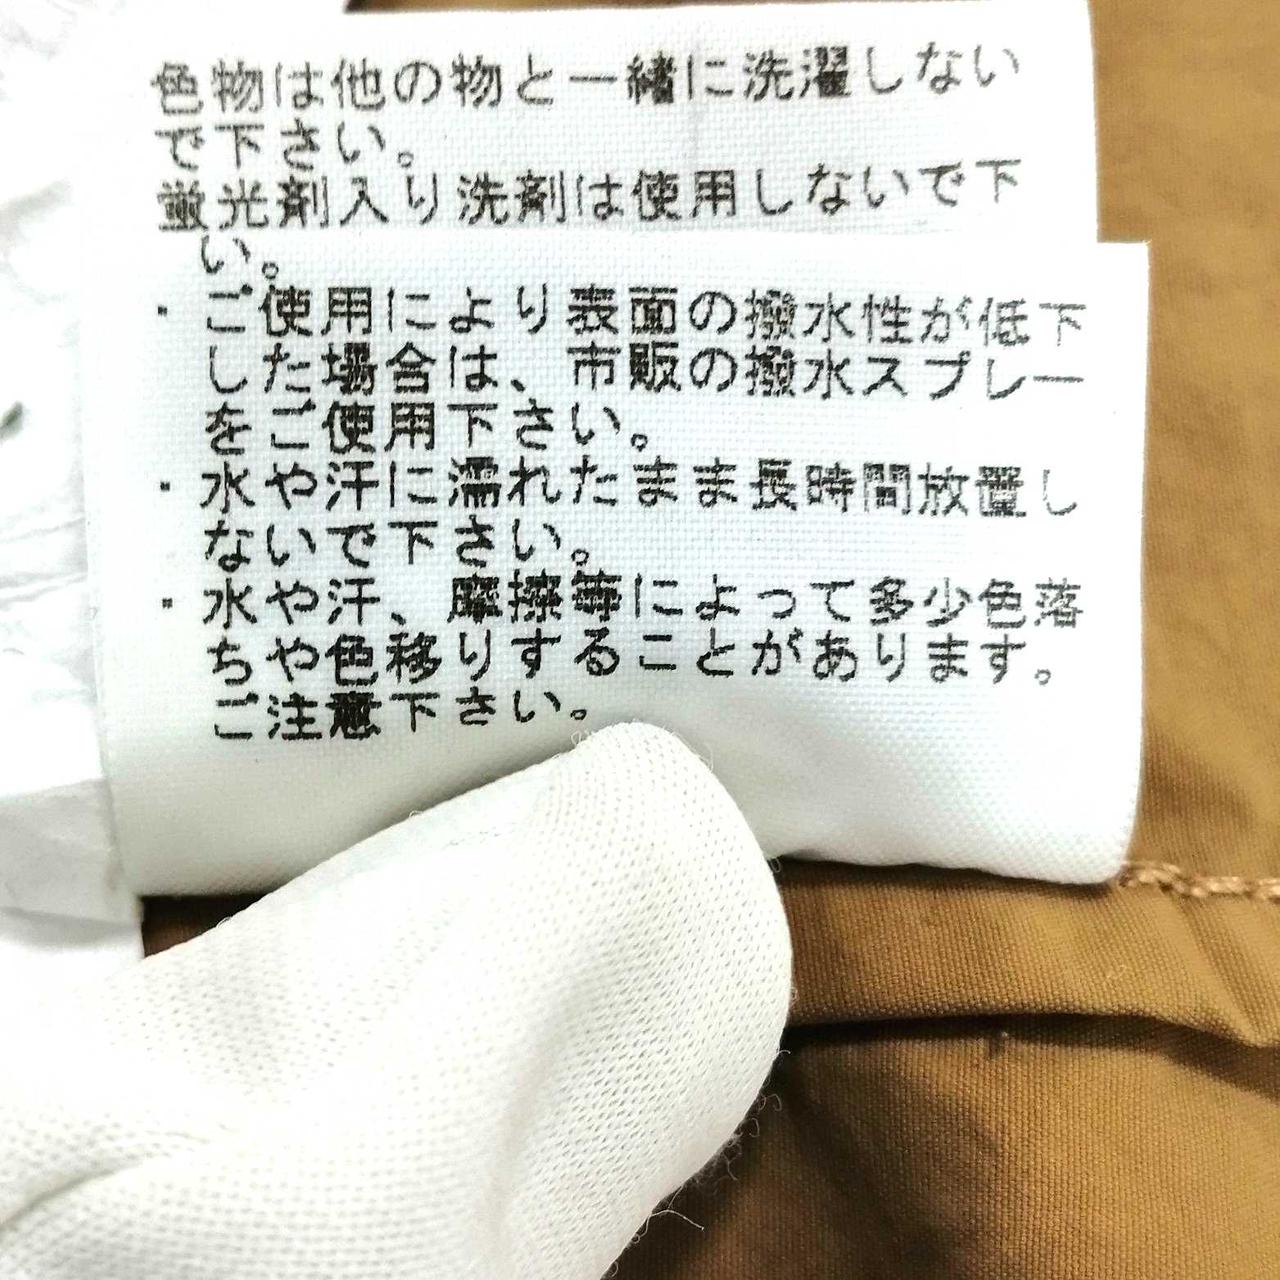 色物は他の物と一緒に洗濯しない
で下さい。
蛍光剤入り洗剤は使用しないで下
い。
・ご使用により表面の撥水性が低下
した場合は、市販の撥水スプレー
をご使用下さい。
・水や汗に濡れたまま長時間放置し
ないで下さい。
・水や汗、摩擦等によって多少色落
ちや色移りすることがあります。
ご注意下さい。